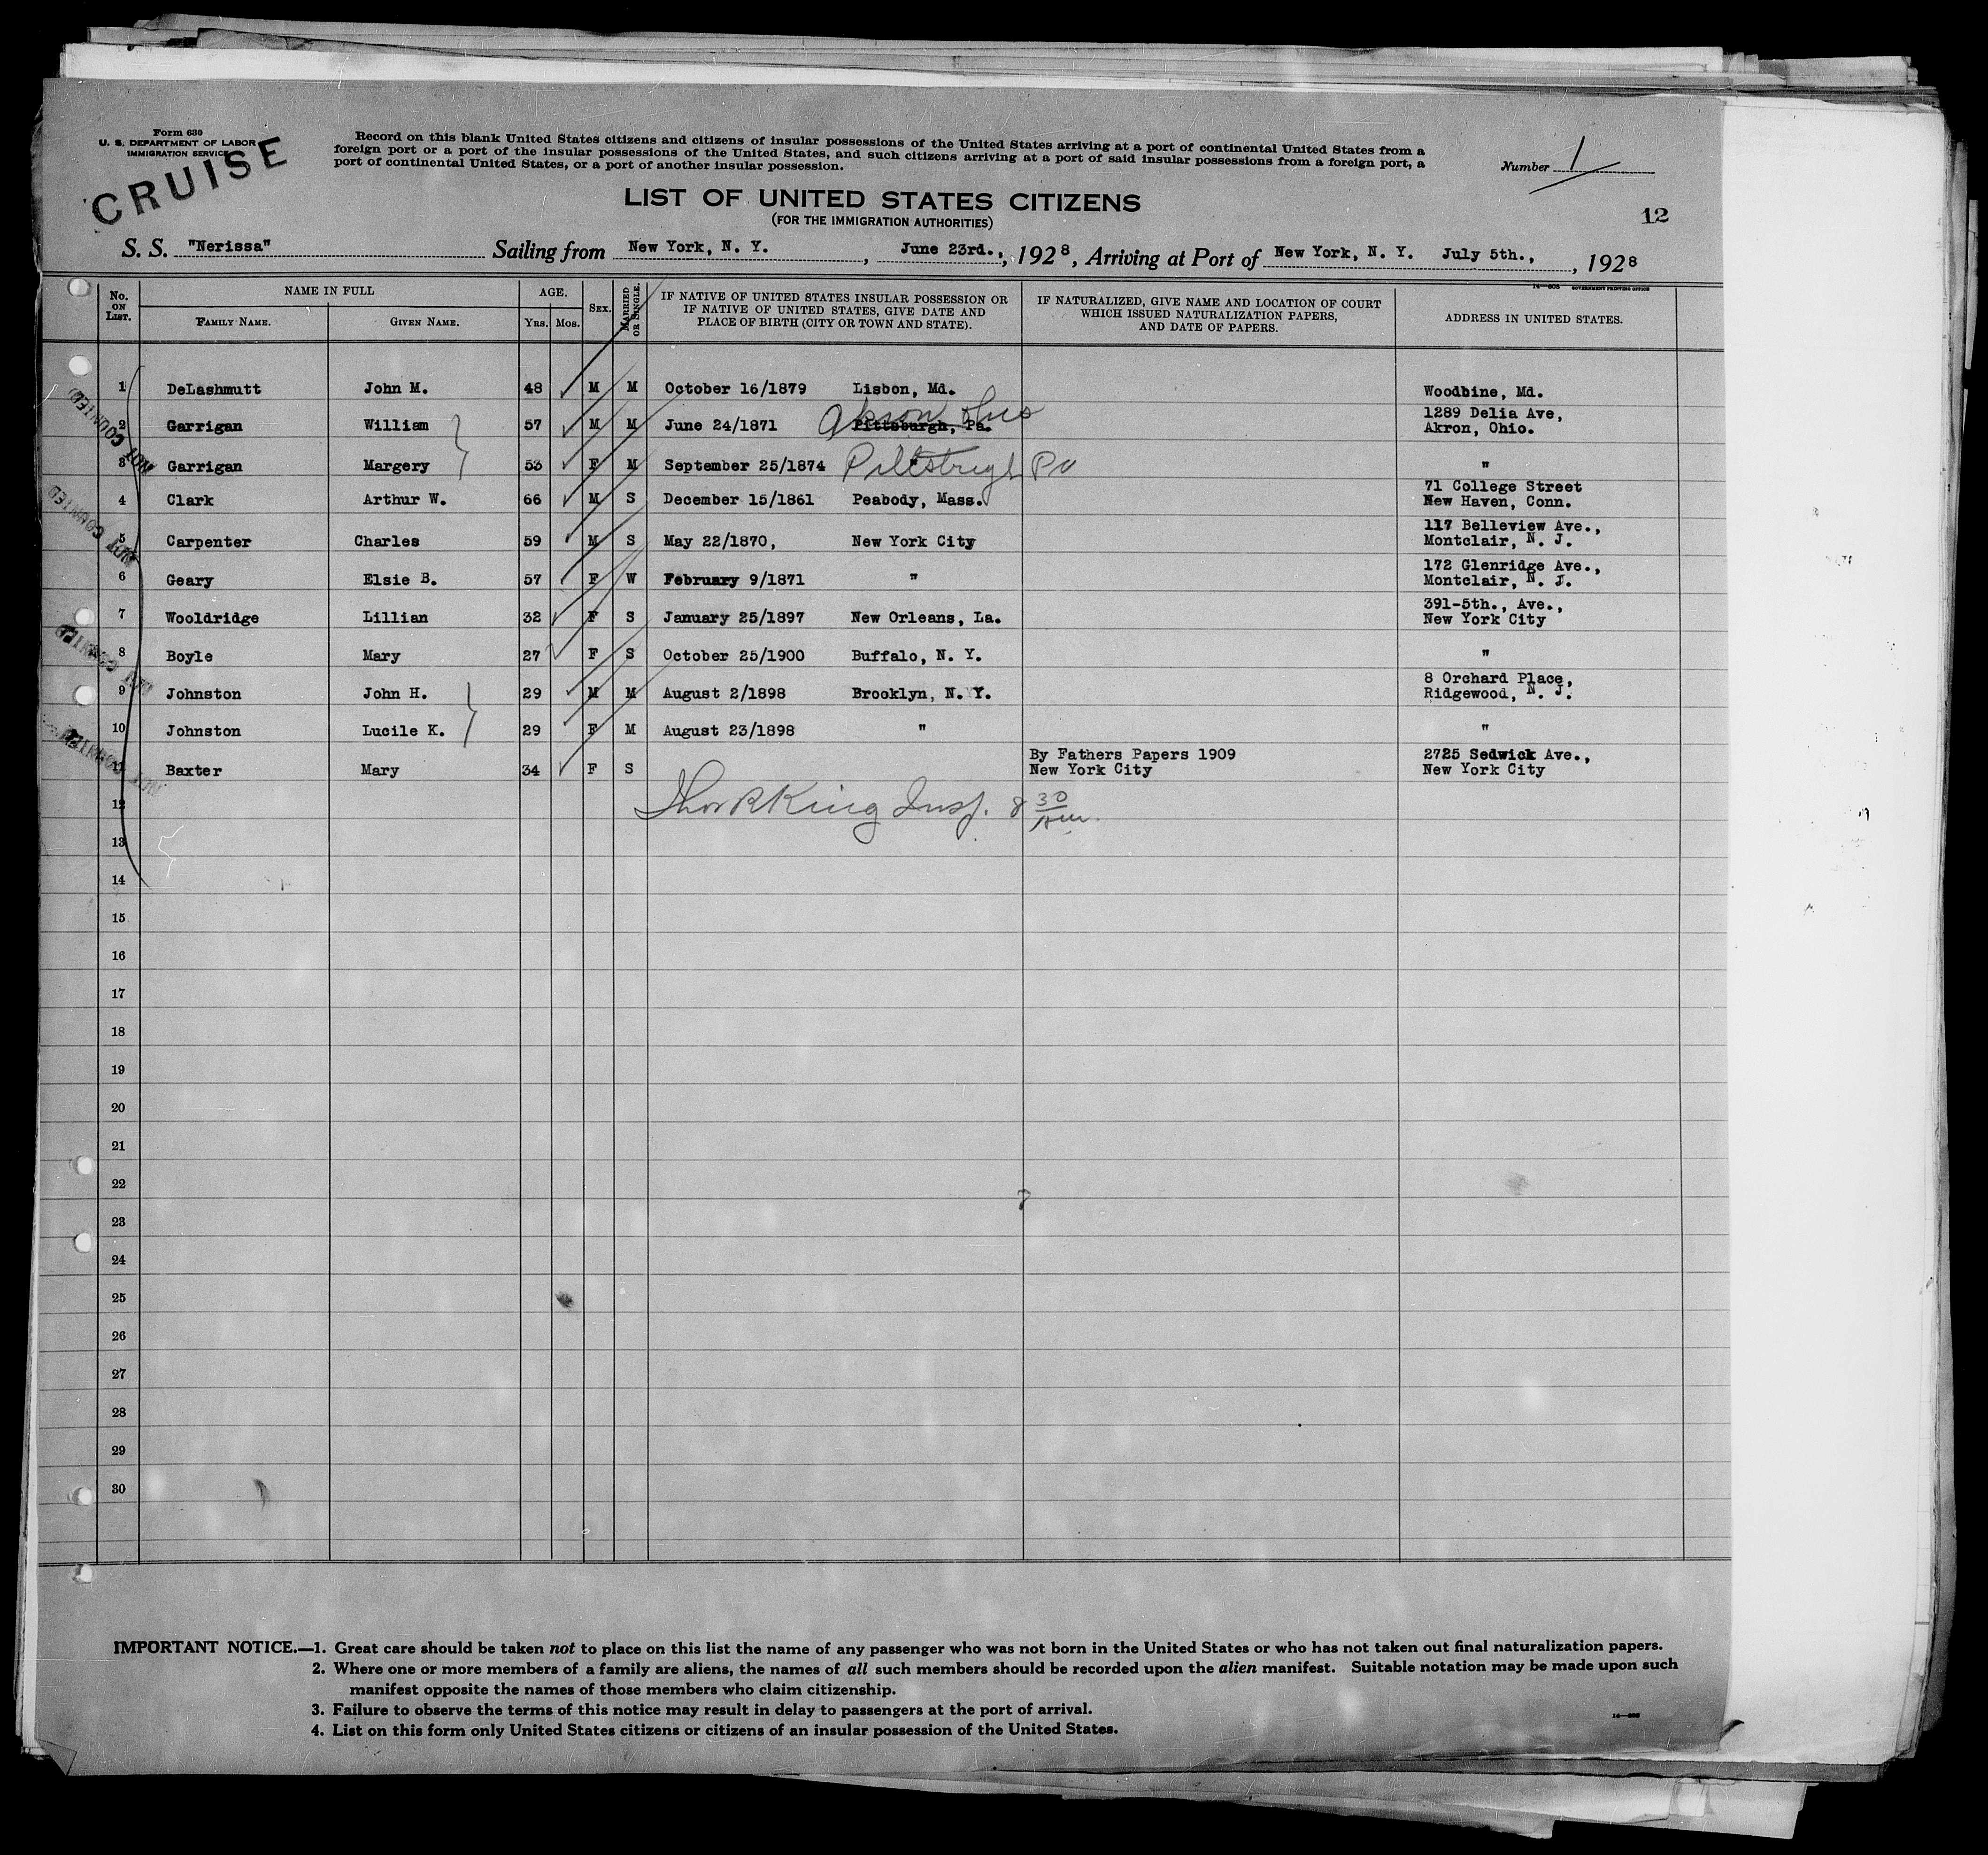 Form 630
U. S. DEPARTMENT OF LABOR
IMMIGRATION SERVICE
CRUISE
Record on this blank United States citizens and citizens of insular possessions of the United States arriving at a port of continental United States from a
foreign port or a port of the insular possessions of the United States, and such citizens arriving at a port of said insular possessions from a foreign port, a
port of continental United States, or a port of another insular possession.
Number 1
LIST OF UNITED STATES CITIZENS
(FOR THE IMMIGRATION AUTHORITIES)
12
S. S. "Nerissa" Sailing from New York, N. Y. , June 23rd., , 1928, Arriving at Port of New York, N. Y. July 5th., , 1928
No. ON LIST. NAME IN FULL FAMILY NAME. GIVEN NAME. AGE. YRS. MOS. SEX. MARRIED OR SINGLE. IF NATIVE OF UNITED STATES INSULAR POSSESSION OR IF NATIVE OF UNITED STATES, GIVE DATE AND PLACE OF BIRTH (CITY OR TOWN AND STATE). IF NATURALIZED, GIVE NAME AND LOCATION OF COURT WHICH ISSUED NATURALIZATION PAPERS, AND DATE OF PAPERS. ADDRESS IN UNITED STATES.
14—608 GOVERNMENT PRINTING OFFICE
NOT COUNTED
NOT COUNTED
NOT COUNTED
NOT COUNTED
1 DeLashmutt John M. 48 M M October 16/1879 Lisbon, Md. Woodbine, Md.
2 Garrigan William 57 M M June 24/1871 Pittsburgh, Pa. Akron Ohio 1289 Delia Ave, Akron, Ohio.
3 Garrigan Margery 53 F M September 25/1874 " Pittsburgh Pa "
4 Clark Arthur W. 66 M S December 15/1861 Peabody, Mass. 71 College Street New Haven, Conn.
5 Carpenter Charles 59 M S May 22/1870, New York City 117 Belleview Ave., Montclair, N. J.
6 Geary Elsie B. 57 F W February 9/1871 " 172 Glenridge Ave., Montclair, N. J.
7 Wooldridge Lillian 32 F S January 25/1897 New Orleans, La. 391-5th., Ave., New York City
8 Boyle Mary 27 F S October 25/1900 Buffalo, N. Y. "
9 Johnston John H. 29 M M August 2/1898 Brooklyn, N. Y. 8 Orchard Place, Ridgewood, N. J.
10 Johnston Lucile K. 29 F M August 23/1898 " "
11 Baxter Mary 34 F S By Fathers Papers 1909 New York City 2725 Sedwick Ave., New York City
12 King Insp. 8 30
13
14
15
16
17
18
19
20
21
22
23
24
25
26
27
28
29
30
IMPORTANT NOTICE.—1. Great care should be taken not to place on this list the name of any passenger who was not born in the United States or who has not taken out final naturalization papers.
2. Where one or more members of a family are aliens, the names of all such members should be recorded upon the alien manifest. Suitable notation may be made upon such
manifest opposite the names of those members who claim citizenship.
3. Failure to observe the terms of this notice may result in delay to passengers at the port of arrival.
4. List on this form only United States citizens or citizens of an insular possession of the United States.